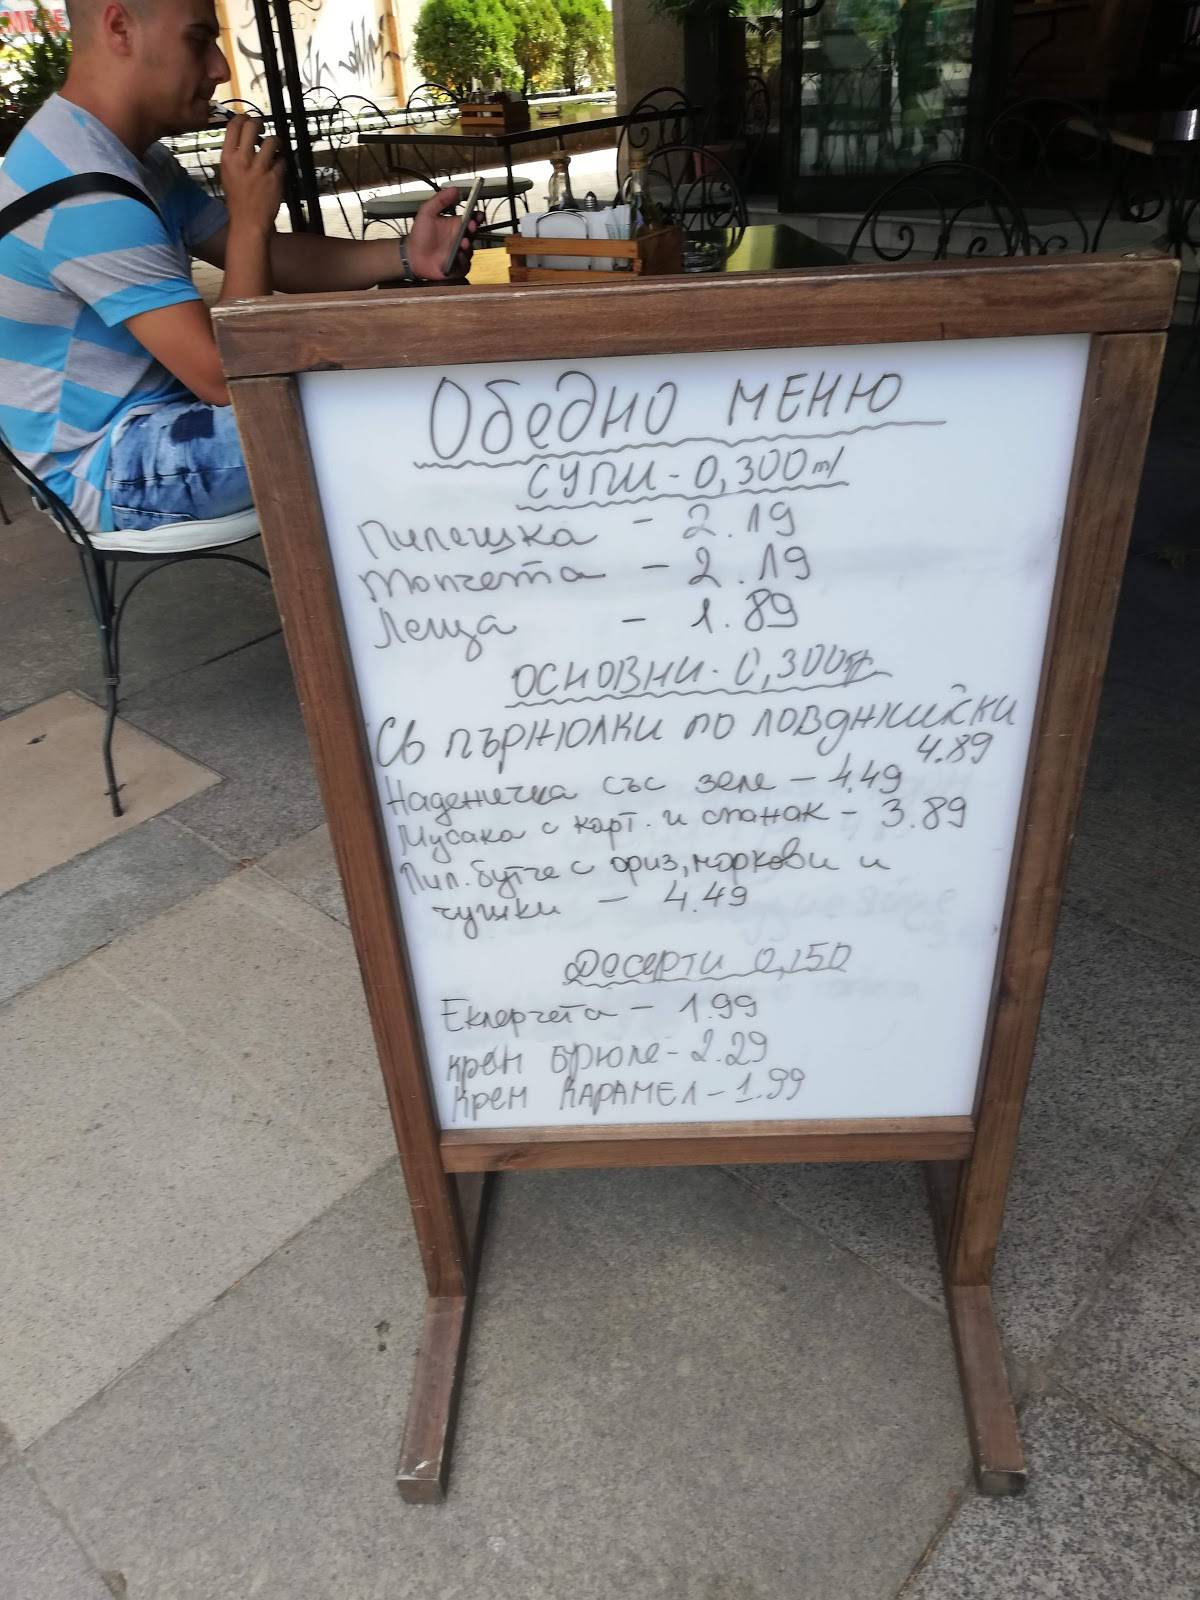 Обедно меню
супи - 0,300 ml
Пилешка - 2.19
Топчета - 2.19
Леща - 1.89
основни - 0,300гр
Св пържолки по ловджийски
4.89
Наденичка със зеле - 4,49
Мусака с карт. и спанак - 3.89
Пил. бутче с ориз, моркови и
чушки - 4.49
Десерти 0,150
Еклерчета - 1.99
крем брюле - 2.29
Крем КАРАМЕЛ - 1.99